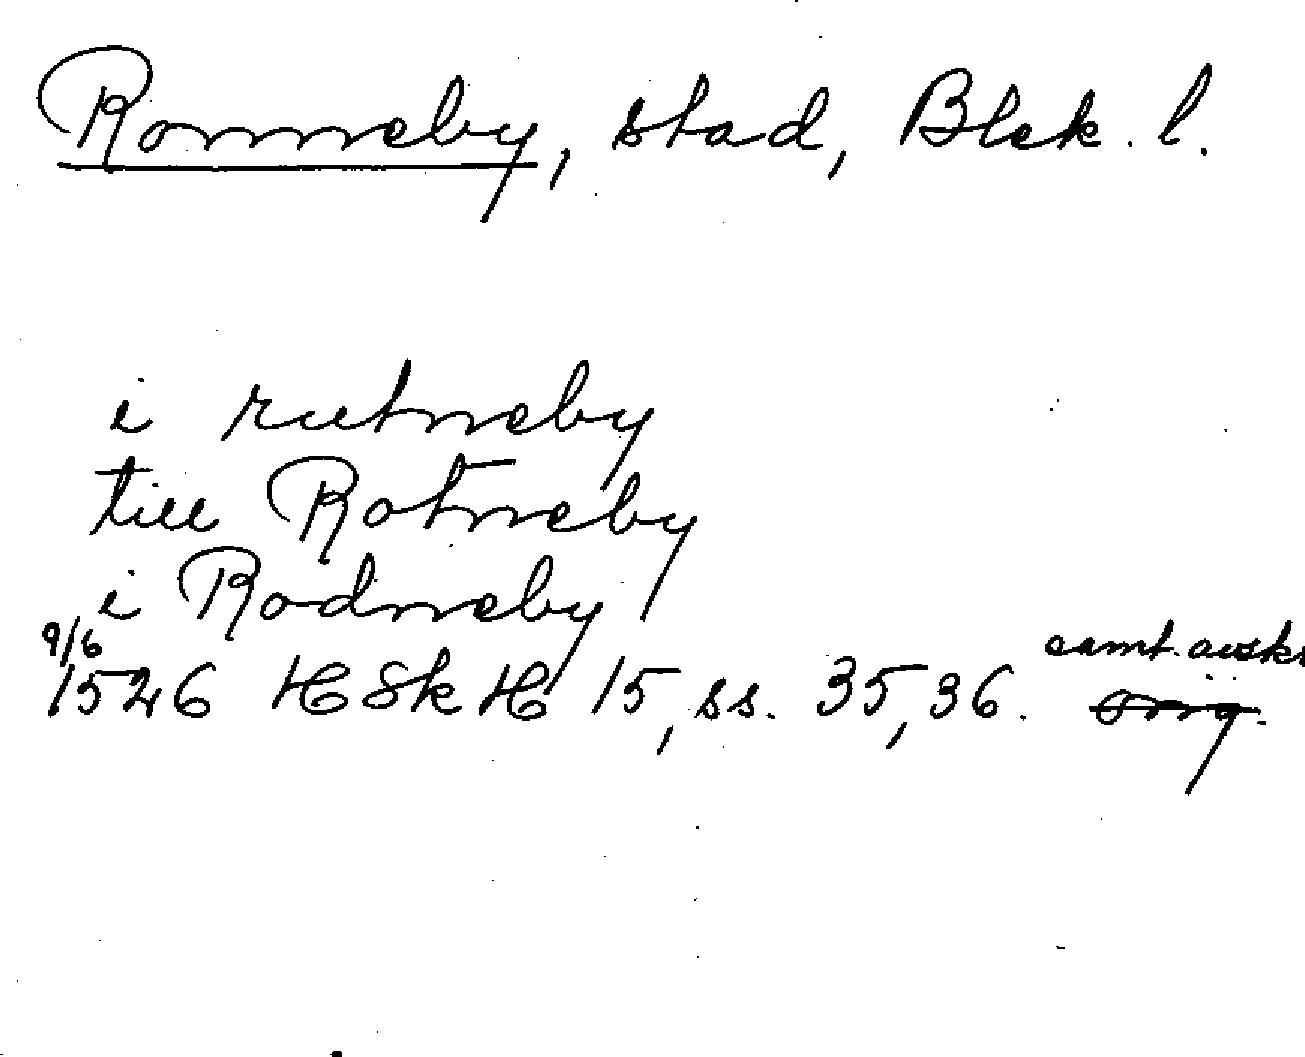 Ronneby, stad, Blek. l.
i rutneby
till Rotneby
i Rodneby
9/6 samt. avskr
1526 HSkH 15, ss. 35, 36. orig.